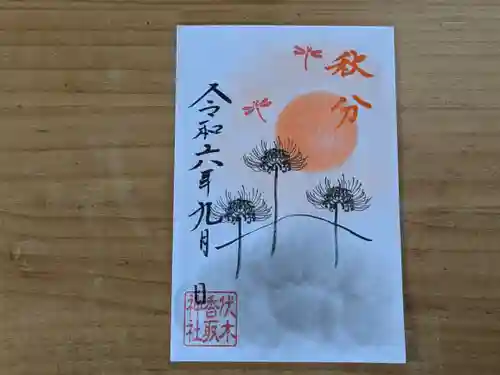 秋分
令和六年九月 日
伏木
香取
神社